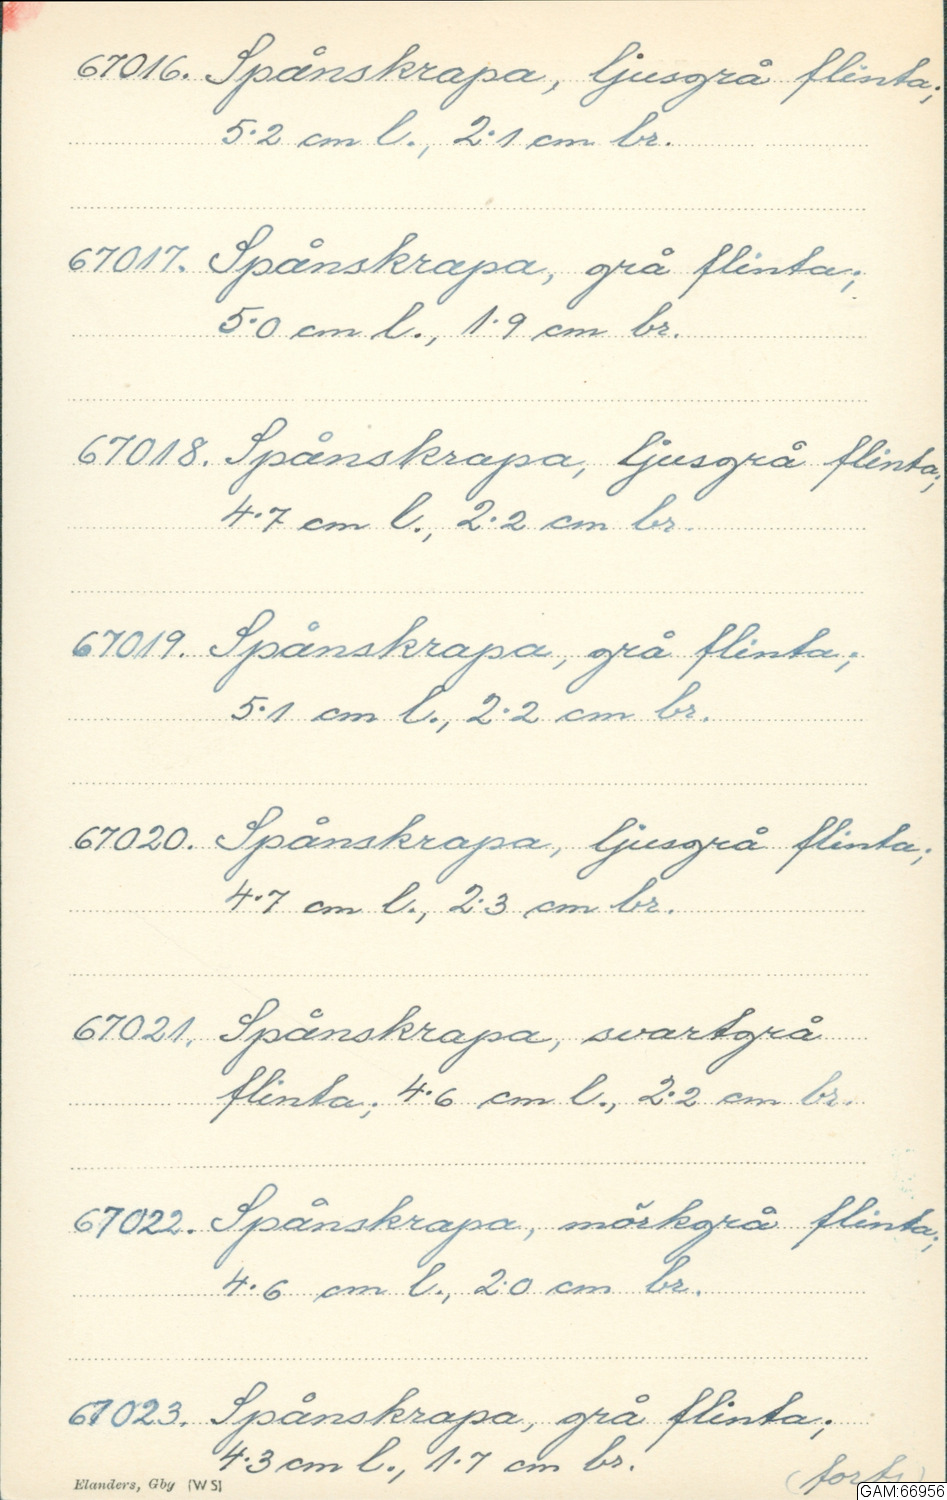 67016. Spånskrapa, ljusgrå flinta;
5·2 cm l., 2·1 cm br.
67017. Spånskrapa, grå flinta;
5·0 cm l., 1·9 cm br.
67018. Spånskrapa, ljusgrå flinta;
4·7 cm l., 2·2 cm br.
67019. Spånskrapa, grå flinta;
5·1 cm l., 2·2 cm br.
67020. Spånskrapa, ljusgrå flinta;
4·7 cm l., 2·3 cm br.
67021. Spånskrapa, svartgrå
flinta; 4·6 cm l., 2·2 cm br.
67022. Spånskrapa, mörkgrå flinta;
4·6 cm l., 2·0 cm br.
67023. Spånskrapa, grå flinta;
4·3 cm l., 1·7 cm br.
Elanders, Gbg [WS]
(forts)
GAM:66956